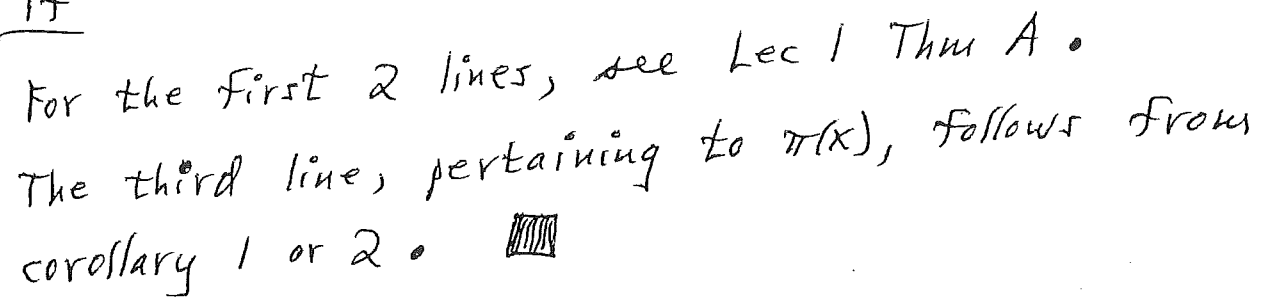 For the first 2 lines, see Lec 1 Thm A.
The third line, pertaining to π(x), follows from
corollary 1 or 2.